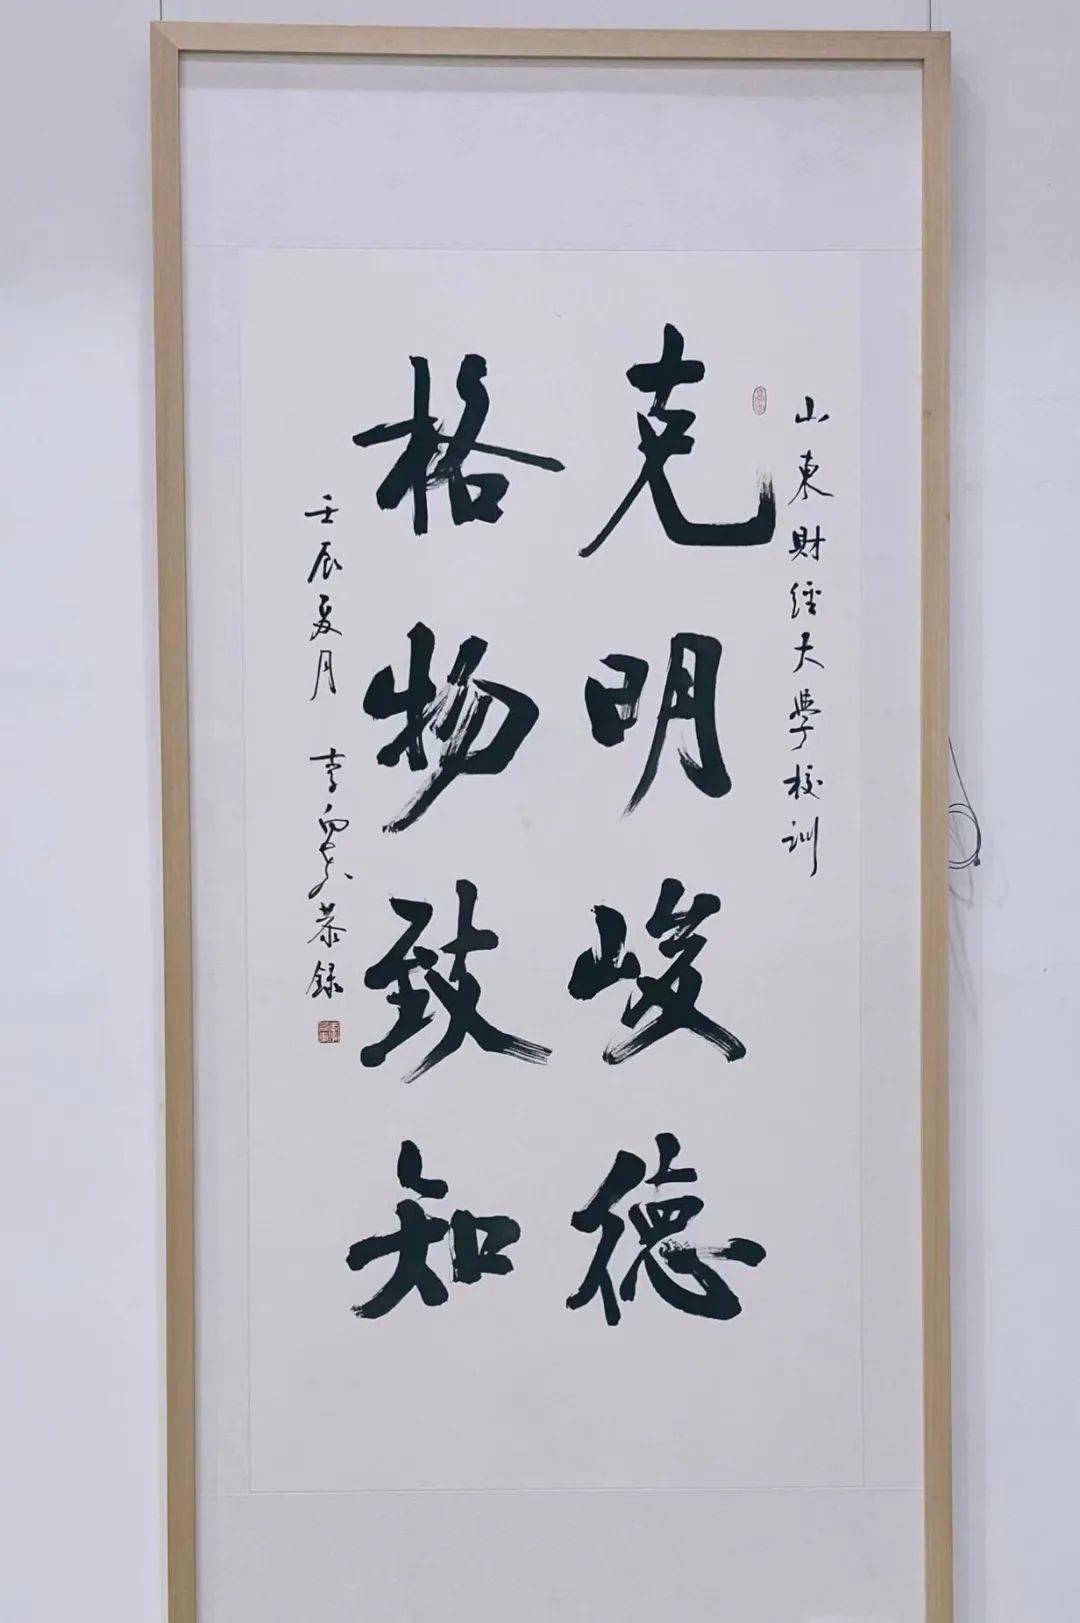 山東財經大學校訓
克明峻德
格物致知
壬辰夏月 李向東恭録